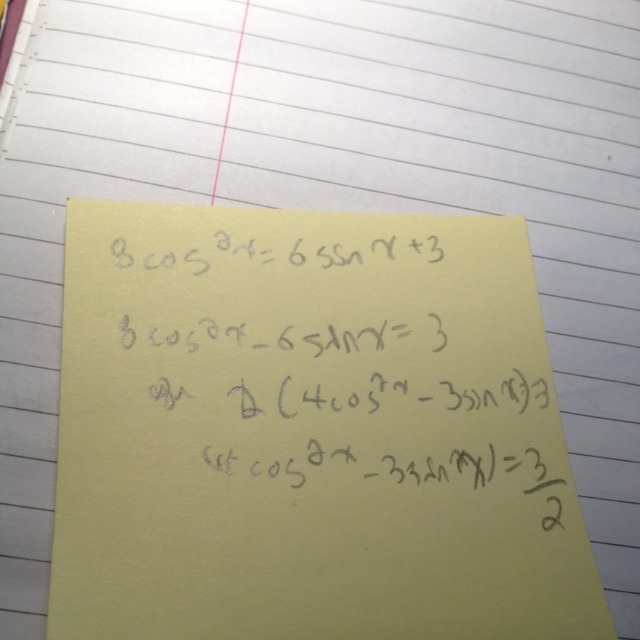 8cos²x=6sinx+3
8cos²x-6sinx=3
2(4cos²x-3sinx)=3
4cos²x-3sinx)=3/2